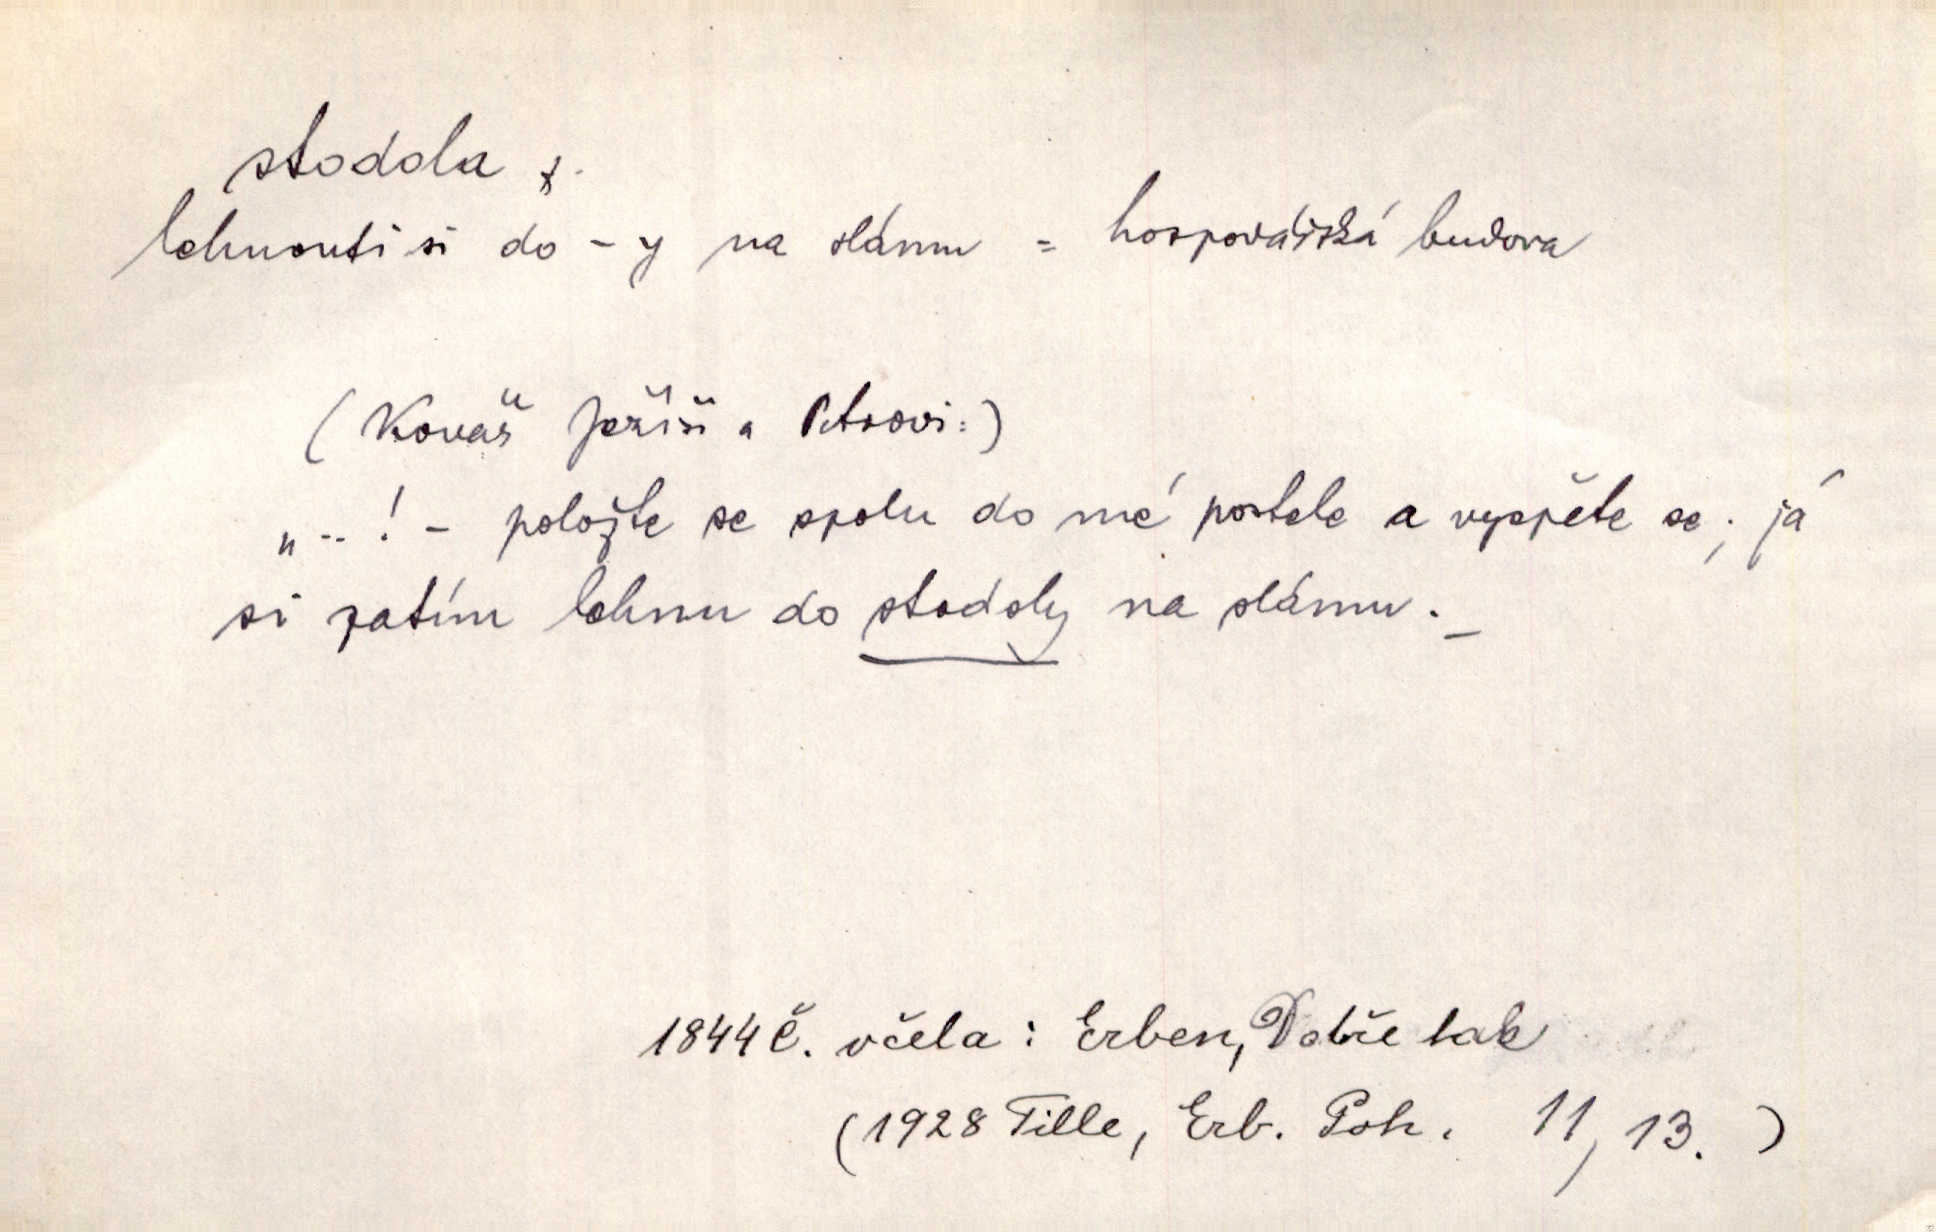 stodola f.
lehnouti si do -y na slámu = hospodářská budova
(Kovář Ježíši a Petrovi:)
„..! - položte se spolu do mé postele a vyspěte se; já
si zatím lehnu do stodoly na slámu._
1844 Č. včela: Erben, Dobře tak
(1928 Tille, Erb. Poh. 11, 13.)